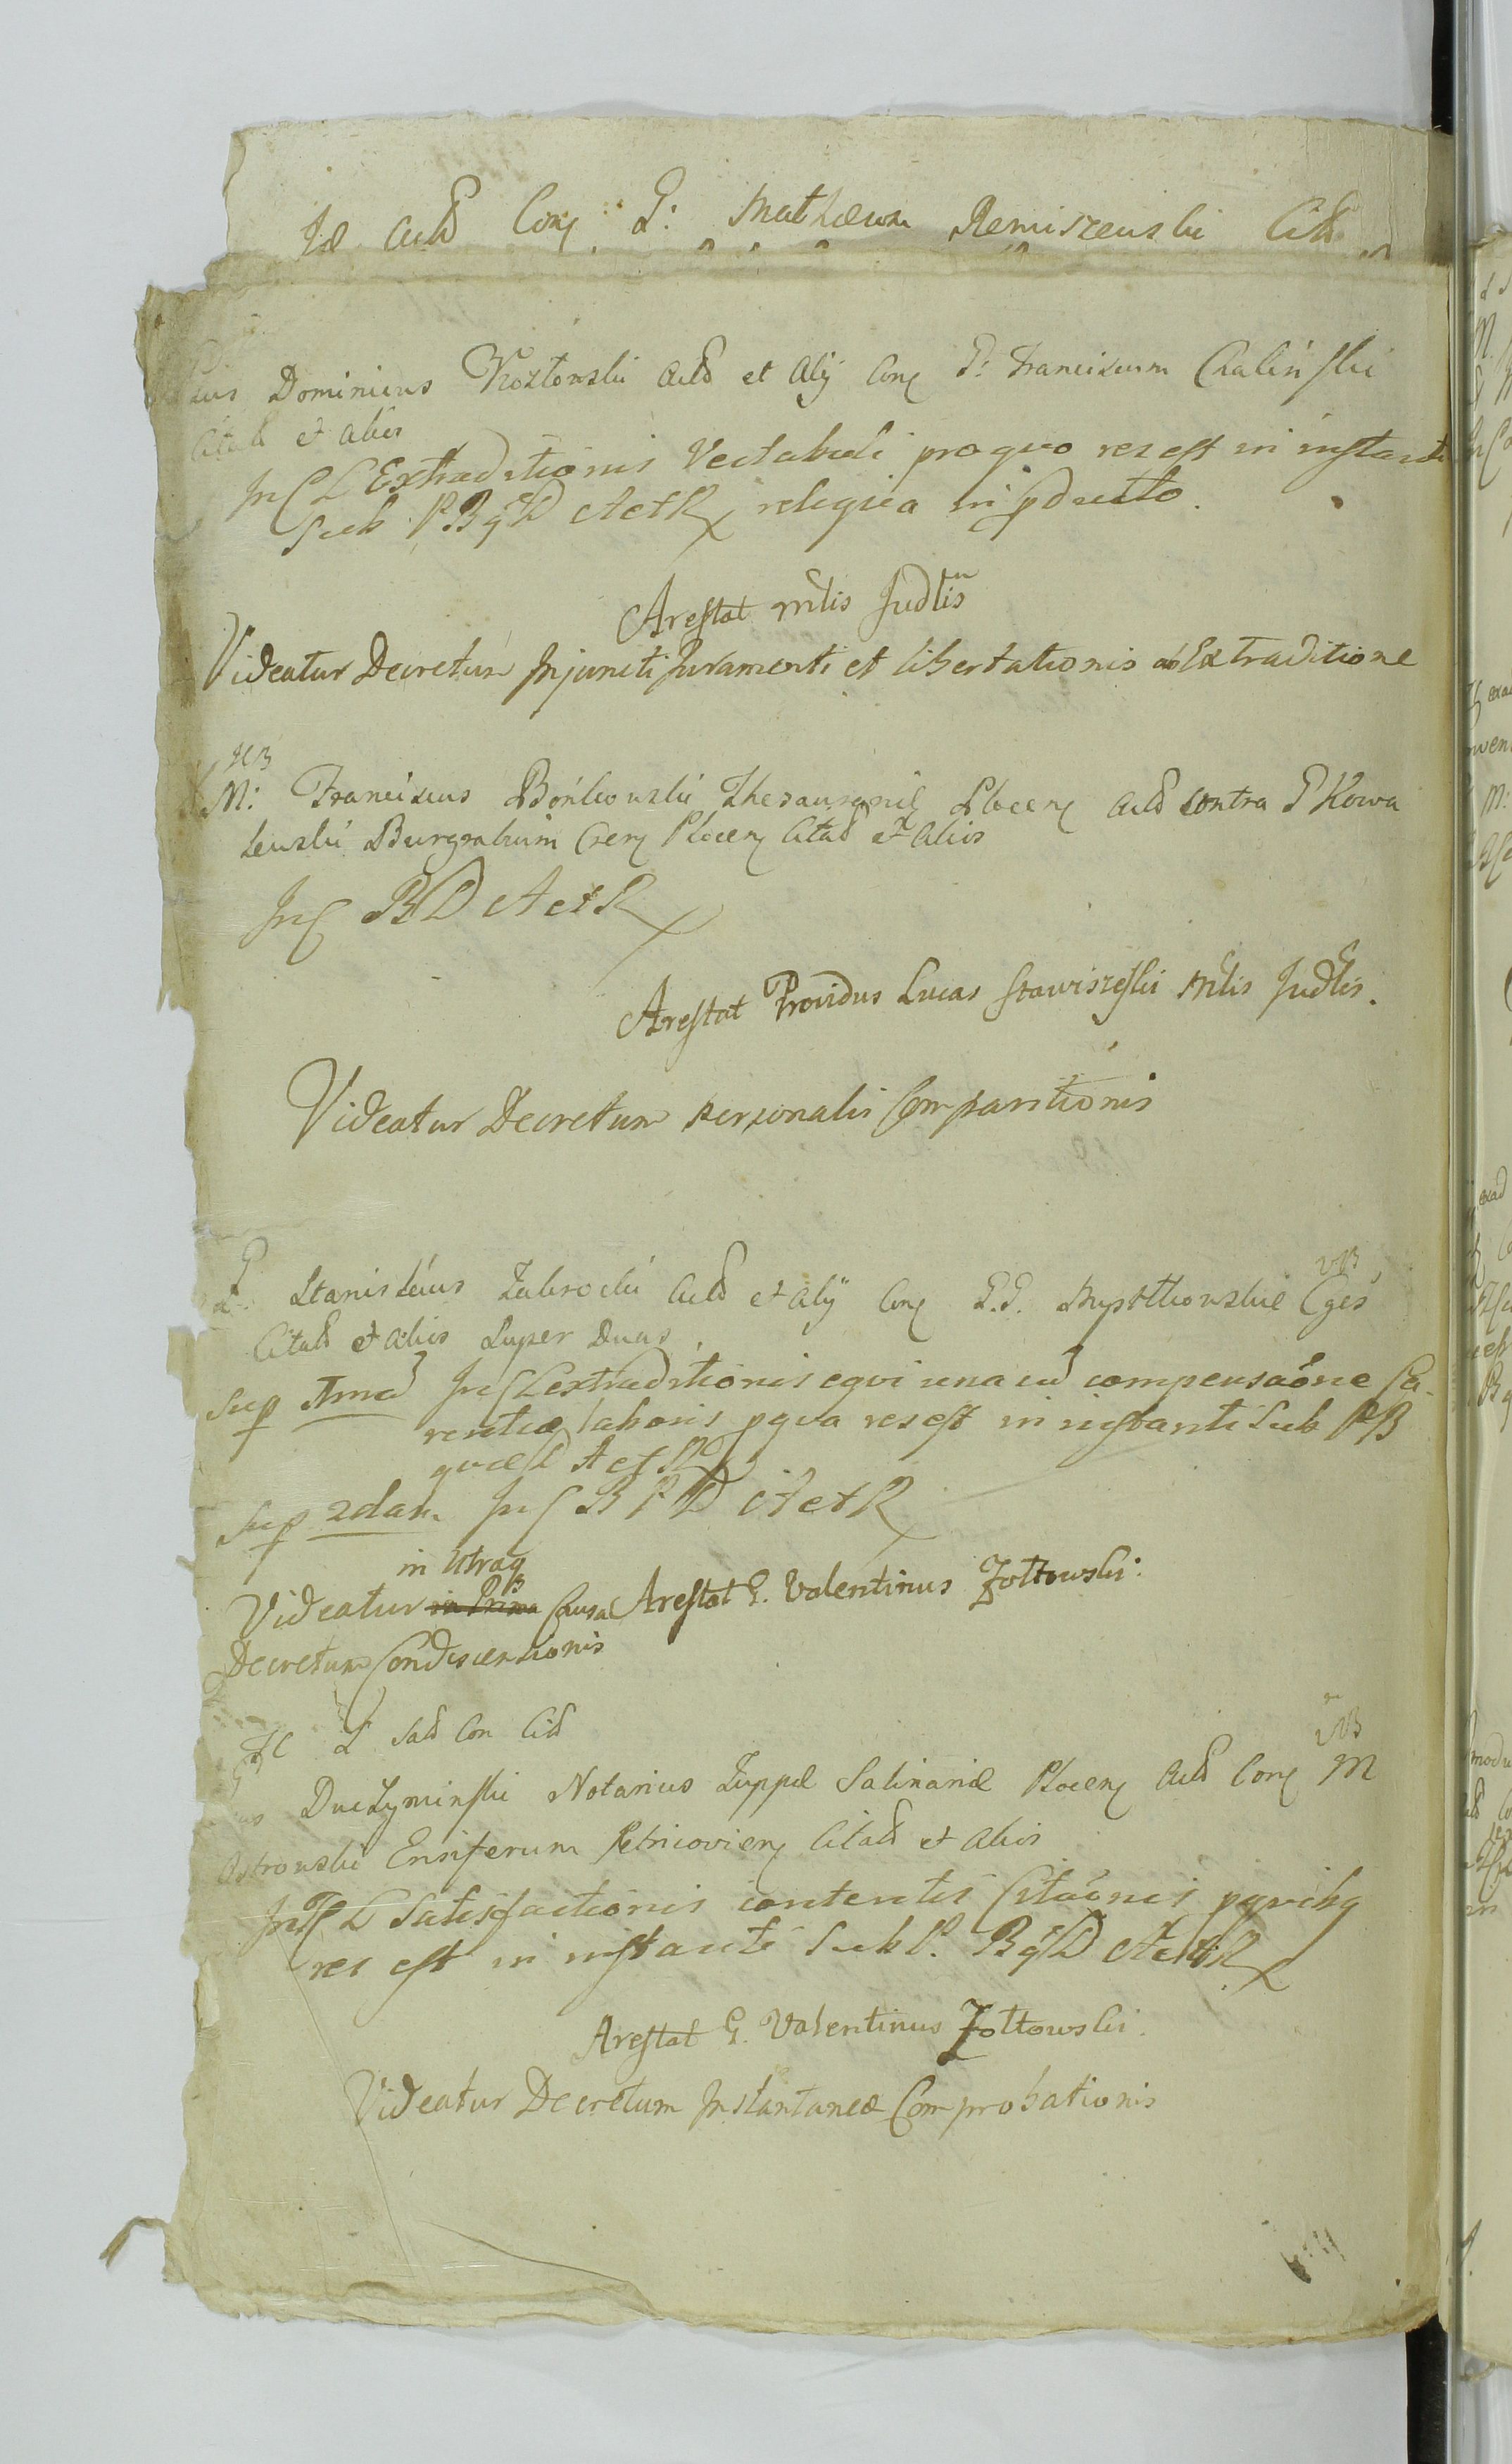 Id Actd Conq G: Mathæum Remiszewski Citd
Dominicus Kozłowski Actd et Alÿ Conq G: Franciscum Chalinski
Citatd et Alios
In C L Extraditionis Vectabuli pro quo res est in instanti
Sub PB q L D A et R religiea in pducto.
Arestat mtlis Judtis
Videatur Decretum Injuncti Juramenti et libertationis ab Extraditione
M: Franciscus Bońkowski Thesaurariq Plocenq Actd contra G Kowa
lewski Burgrabium Crenq Plocenq Citatd et Alios
In C B D A et R
Arestat Providus Lucas Stawiszeski Mtlis Judtlis.
Videatur Decretum personalis Comparitionis
G Stanisłaus Zabrocki Actd et Alÿ Conq G.G. Mystkowskie Cges
Citatd et Alios Super Duas
Sup Imad In C L extraditionis equi una cu compensaone Ca
rentiæ laboris pqua res est in instanti Sub PB
quæstL A et R
Sup 2dam In C B P D A et R
in Utraq
Videatur in Prima Causa Arestat G. Valentinus Zołtowski:
Decretum Condescensionis
G Sad Con Citd
Duczyminski Notarius Zuppæ Salinariæ Plocenq Actd Conq M
Ostrowski Ensiferum Petricovienq Citatd et Alios
In C L Satisfactionis contentis Citaonis pquibq
res est in instanti Sub P. B q L D A et R
Arestat G. Valentinus Zołtowski.
Videatur Decretum Instantaneæ Comprobationis